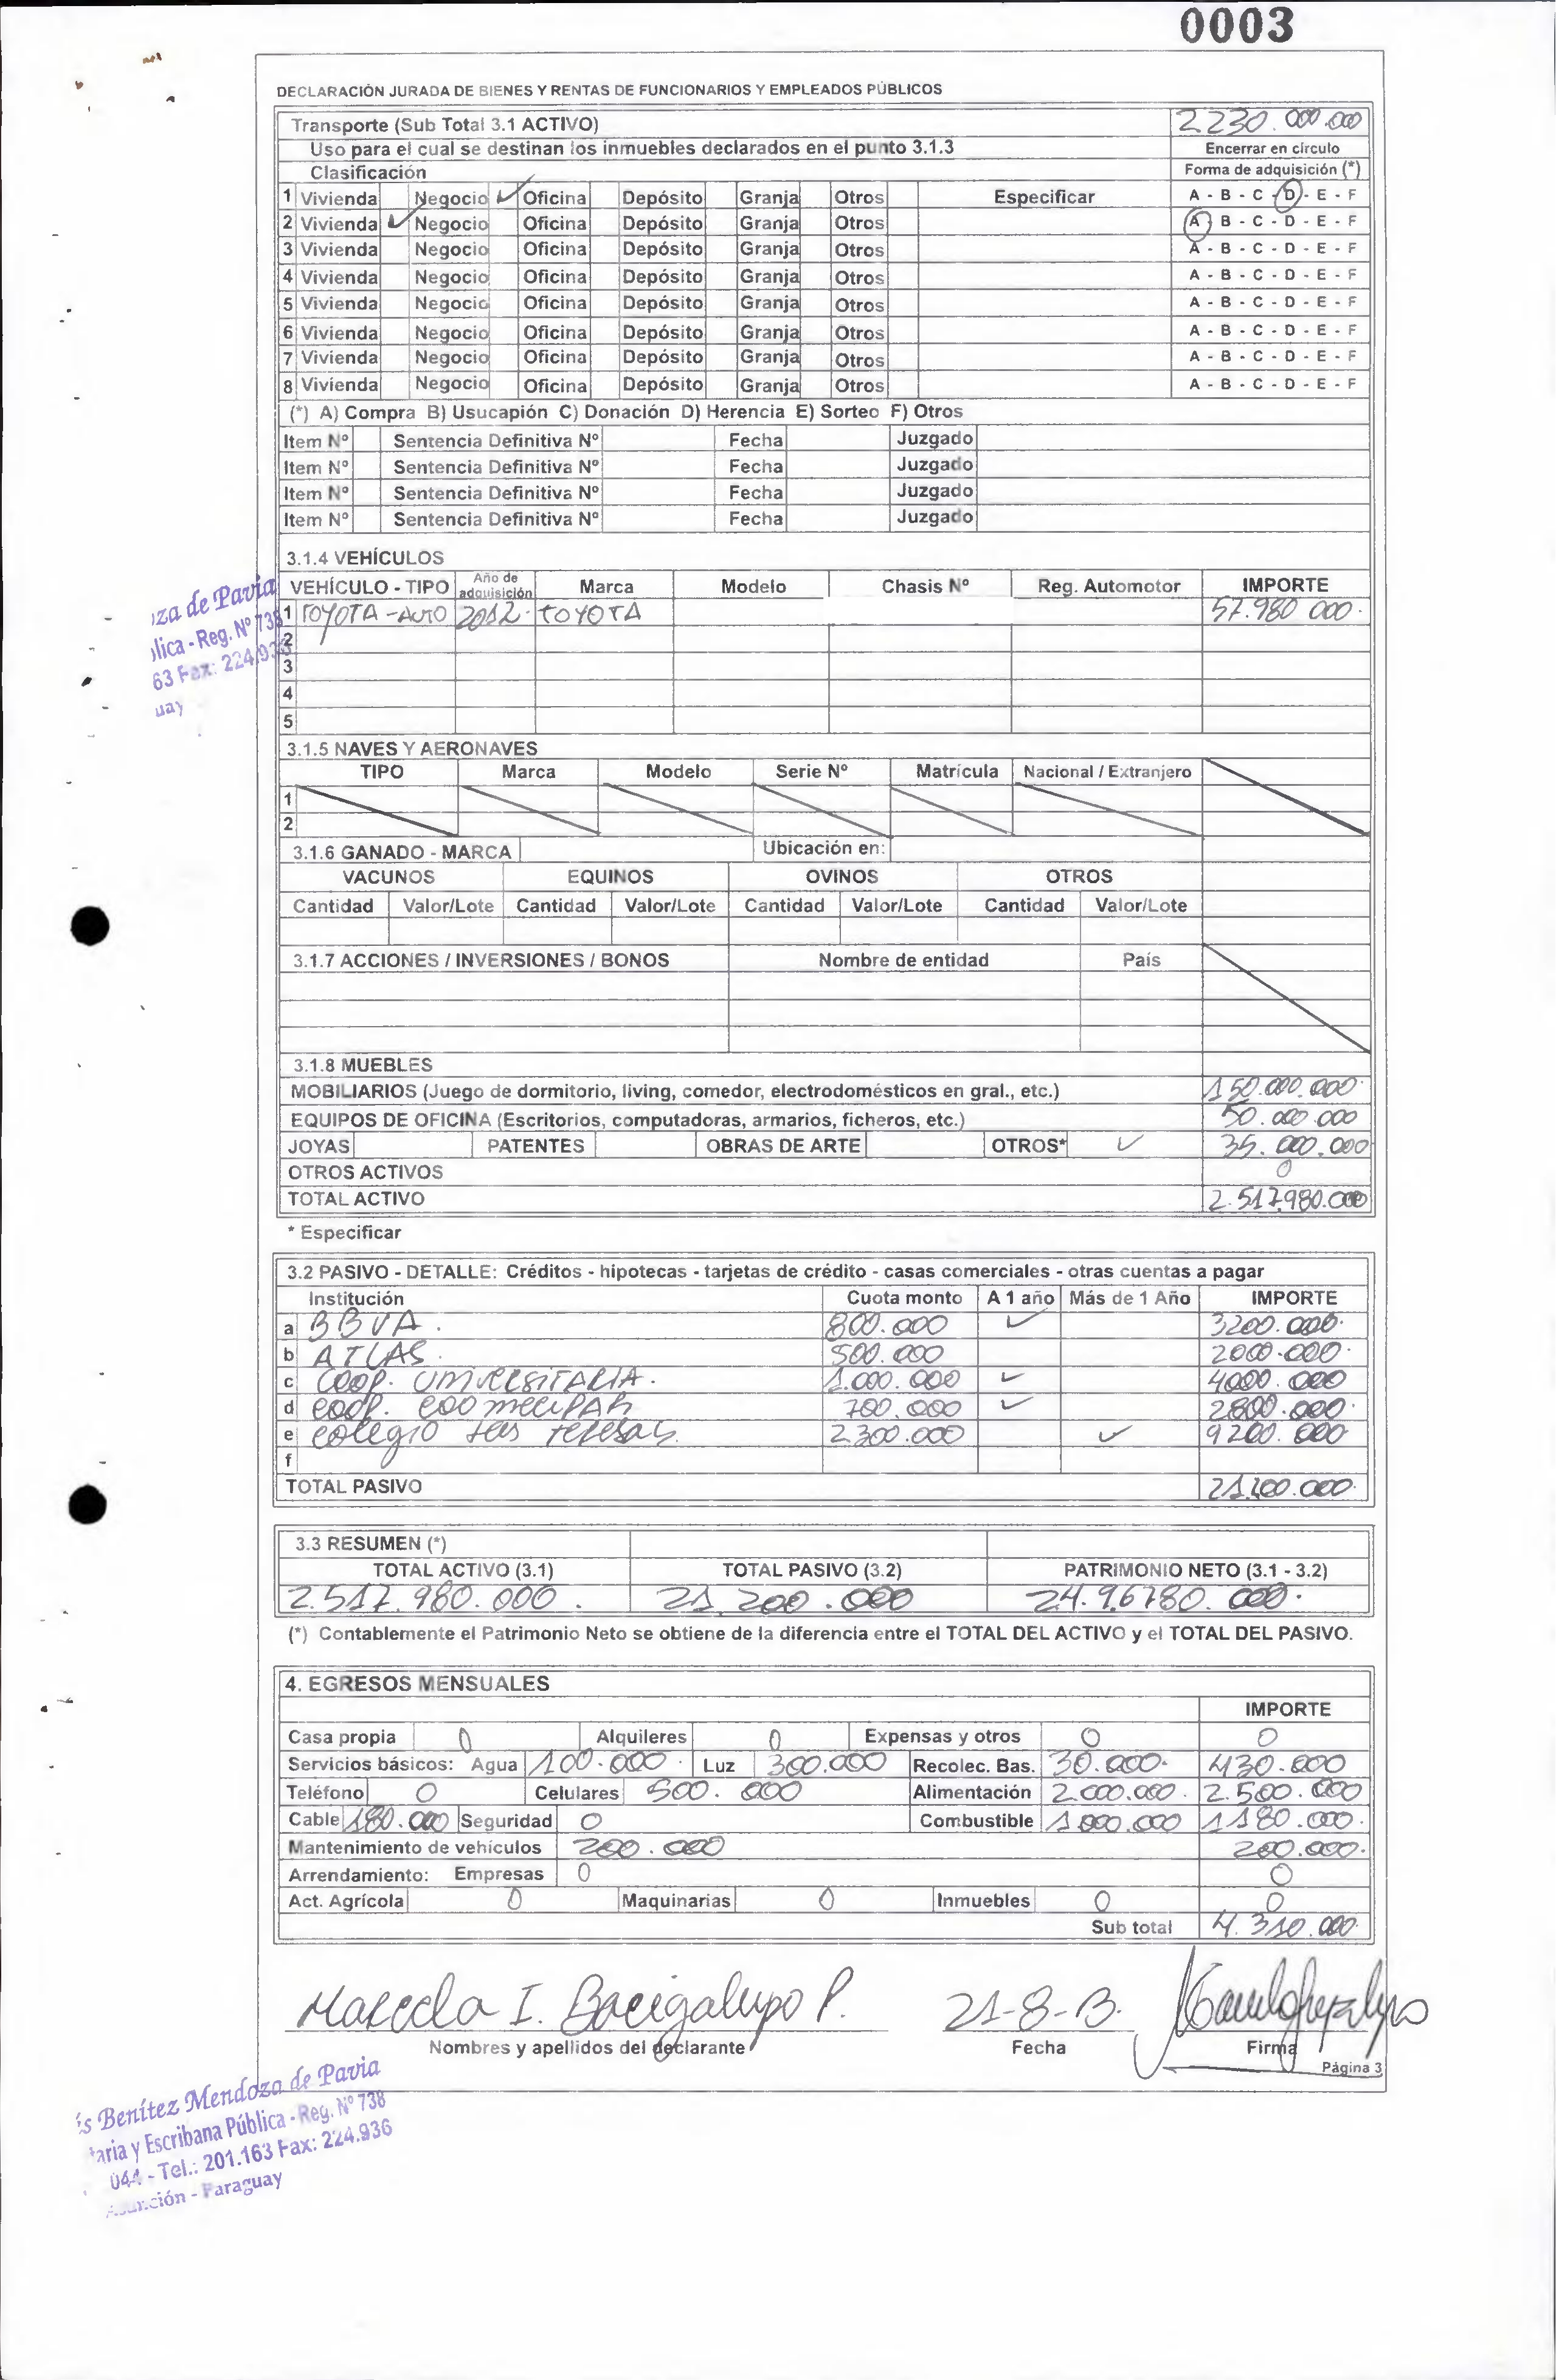 0003
DECLARACIÓN JURADA DE BIENES Y RENTAS DE FUNCIONARIOS Y EMPLEADOS PÚBLICOS
Transporte (Sub Total 3.1 ACTIVO) 2.230.000.000
Uso para el cual se destinan los inmuebles declarados en el punto 3.1.3 Encerrar en círculo
Clasificación Forma de adquisición (*)
1 Vivienda Negocio ✓ Oficina Depósito Granja Otros Especificar A - B - C - D - E - F
2 Vivienda ✓ Negocio Oficina Depósito Granja Otros A B - C - D - E - F
3 Vivienda Negocio Oficina Depósito Granja Otros A - B - C - D - E - F
4 Vivienda Negocio Oficina Depósito Granja Otros A - B - C - D - E - F
5 Vivienda Negocio Oficina Depósito Granja Otros A - B - C - D - E - F
6 Vivienda Negocio Oficina Depósito Granja Otros A - B - C - D - E - F
7 Vivienda Negocio Oficina Depósito Granja Otros A - B - C - D - E - F
8 Vivienda Negocio Oficina Depósito Granja Otros A - B - C - D - E - F
(*) A) Compra B) Usucapión C) Donación D) Herencia E) Sorteo F) Otros
Item Nº Sentencia Definitiva Nº Fecha Juzgado
Item Nº Sentencia Definitiva Nº Fecha Juzgado
Item Nº Sentencia Definitiva Nº Fecha Juzgado
Item Nº Sentencia Definitiva Nº Fecha Juzgado
3.1.4 VEHÍCULOS
VEHÍCULO - TIPO Año de adquisición Marca Modelo Chasis Nº Reg. Automotor IMPORTE
1 TOYOTA - AUTO 2012 - TOYOTA 57.980 000.
2
3
4
5
za de Pavia
lica - Reg. Nº 738
63 Fax: 224.936
uay
3.1.5 NAVES Y AERONAVES
TIPO Marca Modelo Serie Nº Matrícula Nacional / Extranjero
1
2
3.1.6 GANADO - MARCA Ubicación en:
VACUNOS EQUINOS OVINOS OTROS
Cantidad Valor/Lote Cantidad Valor/Lote Cantidad Valor/Lote Cantidad Valor/Lote
3.1.7 ACCIONES / INVERSIONES / BONOS Nombre de entidad País
3.1.8 MUEBLES
MOBILIARIOS (Juego de dormitorio, living, comedor, electrodomésticos en gral., etc.) 150.000.000
EQUIPOS DE OFICINA (Escritorios, computadoras, armarios, ficheros, etc.) 50.000.000
JOYAS PATENTES OBRAS DE ARTE OTROS* ✓ 35.000.000
OTROS ACTIVOS 0
TOTAL ACTIVO 2.517.980.000
* Especificar
3.2 PASIVO - DETALLE: Créditos - hipotecas - tarjetas de crédito - casas comerciales - otras cuentas a pagar
Institución Cuota monto A 1 año Más de 1 Año IMPORTE
a BBVA. 800.000 ✓ 3200.000.
b ATLAS. 500.000 2000.000.
c COOP. UNIVERSITARIA. 1.000.000 ✓ 4000.000
d COOP. COOMECIPAR 700.000 ✓ 2800.000.
e colegio las teresas 2.300.000 ✓ 9200.000
f
TOTAL PASIVO 21.200.000.
3.3 RESUMEN (*)
TOTAL ACTIVO (3.1) TOTAL PASIVO (3.2) PATRIMONIO NETO (3.1 - 3.2)
2.517.980.000. 21.200.000 24.96780.000.
(*) Contablemente el Patrimonio Neto se obtiene de la diferencia entre el TOTAL DEL ACTIVO y el TOTAL DEL PASIVO.
4. EGRESOS MENSUALES
IMPORTE
Casa propia 0 Alquileres 0 Expensas y otros 0 0
Servicios básicos: Agua 100.000. Luz 300.000 Recolec. Bas. 30.000. 430.000
Teléfono 0 Celulares 500.000 Alimentación 2.000.000. 2.500.000
Cable 180.000 Seguridad 0 Combustible 1.000.000 1180.000.
Mantenimiento de vehículos 200.000 200.000.
Arrendamiento: Empresas 0 0
Act. Agrícola 0 Maquinarias 0 Inmuebles 0 0
Sub total 4.310.000.
Marcela I. Bacigalupo P. 21-8-13.
Nombres y apellidos del declarante Fecha Firma
Página 3
s Benítez Mendoza de Pavia
taria y Escribana Pública - Reg. Nº 738
044 - Tel.: 201.163 Fax: 224.936
Asunción - Paraguay